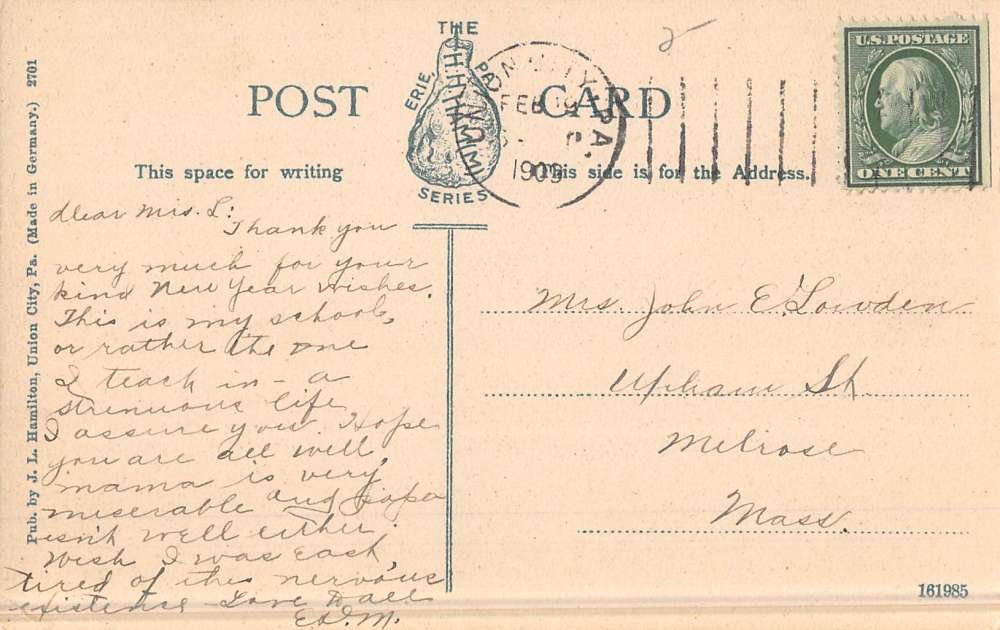 THE
ERIE, PA.
HAMILTON
SERIES
POST CARD
This space for writing
This side is for the Address.
UNION CITY, PA.
FEB 19
1909
2
U.S. POSTAGE
ONE CENT
Pub. by J. L. Hamilton, Union City, Pa. (Made in Germany.) 2701
Dear Mrs. L:
Thank you
very much for your
kind New Year wishes.
This is my school,
or rather the one
I teach in - a
strenuous life
I assure you. Hope
you are all well,
mama is very
miserable and papa
isn't well either.
Wish I was East,
tired of this nervous
existence Love to all
E.D.M.
Mrs. John E. Lowden
Upham St.
Melrose
Mass.
161985